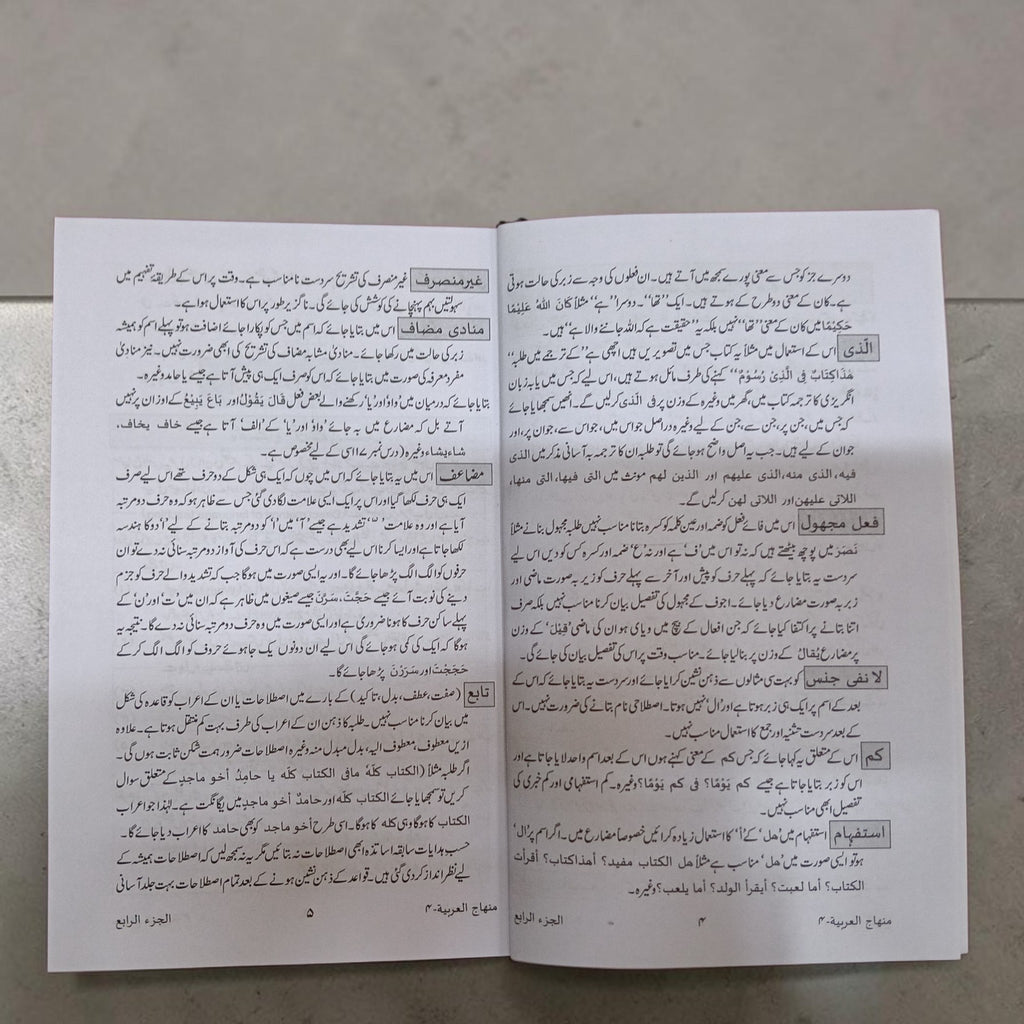 دوسرے جز کو جس سے معنی پورے سمجھ میں آتے ہیں۔ ان فعلوں کی وجہ سے زبر کی حالت ہوتی
ہے۔ کان کے معنی دو طرح کے ہوتے ہیں۔ ایک ''تھا''۔ دوسرا ''ہے'' مثلاً كَانَ اللّٰهُ عَلِيْمًا
حَكِيْمًا میں کان کے معنی ''تھا'' نہیں بلکہ یہ ''حقیقت ہے کہ اللہ جاننے والا ہے'' ہیں۔
الّذی اس کے استعمال میں مثلاً یہ کتاب جس میں تصویریں ہیں اچھی ہے'' کے ترجمے میں طلبہ''
هٰذَا كِتَابٌ فِى الَّذِىْ رُسُوْمٌ'' کہنے کی طرف مائل ہوتے ہیں، اس لیے کہ جس میں یا بہ زبان
انگریزی کا ترجمہ کتاب میں، گھر میں وغیرہ کے وزن پر فی الّذی کر لیں گے۔ انھیں سمجھایا جائے
کہ جس میں، جن پر، جن سے، جن کے لیے وغیرہ دراصل جو اس میں، جو اس سے، جو ان پر، اور
جو ان کے لیے ہیں۔ جب یہ اصل واضح ہو جائے گی تو طلبہ ان کا ترجمہ بہ آسانی مذکر میں الذی
فیه، الذی منه، الذی علیهم اور الذین لهم مونث میں التی فیها، التی منها،
اللاتی علیهن اور اللاتی لهن کر لیں گے۔
فعل مجہول اس میں فائے فعل کو ضمہ اور عین کلمہ کو کسرہ بتانا مناسب نہیں طلبہ مجہول بنانے مثلاً
نَصَرَ میں پوچھ بیٹھتے ہیں کہ نہ تو اس میں 'ف' ہے اور نہ 'ع' ضمہ اور کسرہ کس کو دیں اس لیے
سردست یہ بتایا جائے کہ پہلے حرف کو پیش اور آخر سے پہلے حرف کو زیر بہ صورت ماضی اور
زبر بہ صورت مضارع دیا جائے۔ اجوف کے مجہول کی تفصیل بیان کرنا مناسب نہیں بلکہ صرف
اتنا بتانے پر اکتفا کیا جائے کہ جن افعال کے بیچ میں و یا ی ہو ان کی ماضی 'قِيْلَ' کے وزن
پر مضارع يُقَالُ کے وزن پر بنا لیا جائے۔ مناسب وقت پر اس کی تفصیل بیان کی جائے گی۔
لا نفی جنس کو بہت سی مثالوں سے ذہن نشین کرایا جائے اور سردست یہ بتایا جائے کہ اس کے
بعد کے اسم پر ایک ہی زبر ہوتا ہے اور 'ال' نہیں ہوتا۔ اصطلاحی نام بتانے کی ضرورت نہیں۔ اس
کے بعد سردست تثنیہ اور جمع کا استعمال مناسب نہیں۔
کم اس کے متعلق یہ کہا جائے کہ جس کم کے معنی کتنے ہوں اس کے بعد اسم واحد لایا جاتا ہے اور
اس کو زبر بتایا جاتا ہے جیسے كم يَوْمًا؟ فى كم يَوْمًا؟ وغیرہ۔ کم استفہامی اور کم خبری کی
تفصیل ابھی مناسب نہیں۔
استفہام استفہام میں 'هل' کے 'أ' کا استعمال زیادہ کرائیں خصوصاً مضارع میں۔ اگر اسم پر 'ال'
ہو تو ایسی صورت میں 'هل' مناسب ہے مثلاً هل الكتاب مفيد؟ أهذا كتاب؟ أقرأت
الكتاب؟ أما لعبت؟ أيقرأ الولد؟ أما يلعب؟ وغیرہ۔
منهاج العربية-۴ ۴ الجزء الرابع
غیر منصرف غیر منصرف کی تشریح سردست نامناسب ہے۔ وقت پر اس کے طریقۂ تفہیم میں
سہولتیں بہم پہنچانے کی کوشش کی جائے گی۔ ناگزیر طور پر اس کا استعمال ہوا ہے۔
منادی مضاف اس میں بتایا جائے کہ اسم میں جس کو پکارا جائے اضافت ہو تو پہلے اسم کو ہمیشہ
زبر کی حالت میں رکھا جائے۔ منادیٰ مشابہ مضاف کی تشریح کی ابھی ضرورت نہیں۔ نیز منادیٰ
مفرد معرفہ کی صورت میں بتایا جائے کہ اس کو صرف ایک ہی پیش آتا ہے جیسے یا حامد وغیرہ۔
بتایا جائے کہ درمیان میں 'واو' اور 'یا' رکھنے والے بعض فعل قَالَ يَقُوْلُ اور بَاعَ يَبِيْعُ کے اوزان پر نہیں
آتے بل کہ مضارع میں بہ جائے 'واو' اور 'یا' کے 'الف' آتا ہے جیسے خاف يخاف،
شاء يشاء وغیرہ (درس نمبر ۷ اسی کے لیے مخصوص ہے۔
مضاعف اس میں یہ بتایا جائے کہ اس میں چوں کہ ایک ہی شکل کے دو حرف تھے اس لیے صرف
ایک ہی حرف لکھا گیا اور اس پر ایک ایسی علامت لگا دی گئی جس سے ظاہر ہو کہ وہ حرف دو مرتبہ
آیا ہے اور وہ علامت ' ّ ' تشدید ہے جیسے 'آ' میں 'ا' کو دو مرتبہ بتانے کے لیے 'ا' دو کا ہندسہ
لکھا جاتا ہے اور ایسا کرنا اس لیے بھی درست ہے کہ اس حرف کی آواز دو مرتبہ سنائی نہ دے تو ان
حرفوں کو الگ الگ پڑھا جائے گا۔ اور یہ ایسی صورت میں ہوگا جب کہ تشدید والے حرف کو جزم
دینے کی نوبت آئے جیسے حَجَّتْ، سَرَّنْ جیسے صیغوں میں ظاہر ہے کہ ان میں 'ت' اور 'ن' کے
پہلے ساکن حرف کا ہونا ضروری ہے اور ایسی صورت میں وہ حرف دو مرتبہ سنائی نہ دے گا۔ نتیجہ یہ
ہوگا کہ ایک کی کمی ہو جائے گی اس لیے ان دونوں یک جا ہوئے حروف کو الگ الگ کر کے
حَجَجْتَ اور سَرَرْنَ پڑھا جائے گا۔
تابع (صفت، عطف، بدل، تاکید) کے بارے میں اصطلاحات یا ان کے اعراب کو قاعدہ کی شکل
میں بیان کرنا مناسب نہیں۔ طلبہ کا ذہن ان کے اعراب کی طرف بہت کم منتقل ہوتا ہے۔ علاوہ
ازیں معطوف، معطوف الیہ، بدل مبدل منہ وغیرہ اصطلاحات ضرور ہمت شکن ثابت ہوں گی۔
اگر طلبہ مثلاً (الكتاب كلّهٗ مافى الكتاب كلّه يا حامِدُ أخو ماجدٍ کے متعلق سوال
کریں تو سمجھایا جائے الكتاب كلّه اور حامدٌ أخو ماجدٍ میں یگانگت ہے۔ لہٰذا جو اعراب
الكتاب کا ہوگا وہی كله کا ہوگا۔ اسی طرح أخو ماجد کو بھی حامد کا اعراب دیا جائے گا۔
حسب ہدایات سابقہ اساتذہ ابھی اصطلاحات نہ بتائیں مگر یہ نہ سمجھ لیں کہ اصطلاحات ہمیشہ کے
لیے نظر انداز کر دی گئی ہیں۔ قواعد کے ذہن نشین ہونے کے بعد تمام اصطلاحات بہت جلد آسانی
منهاج العربية-۴ ۵ الجزء الرابع